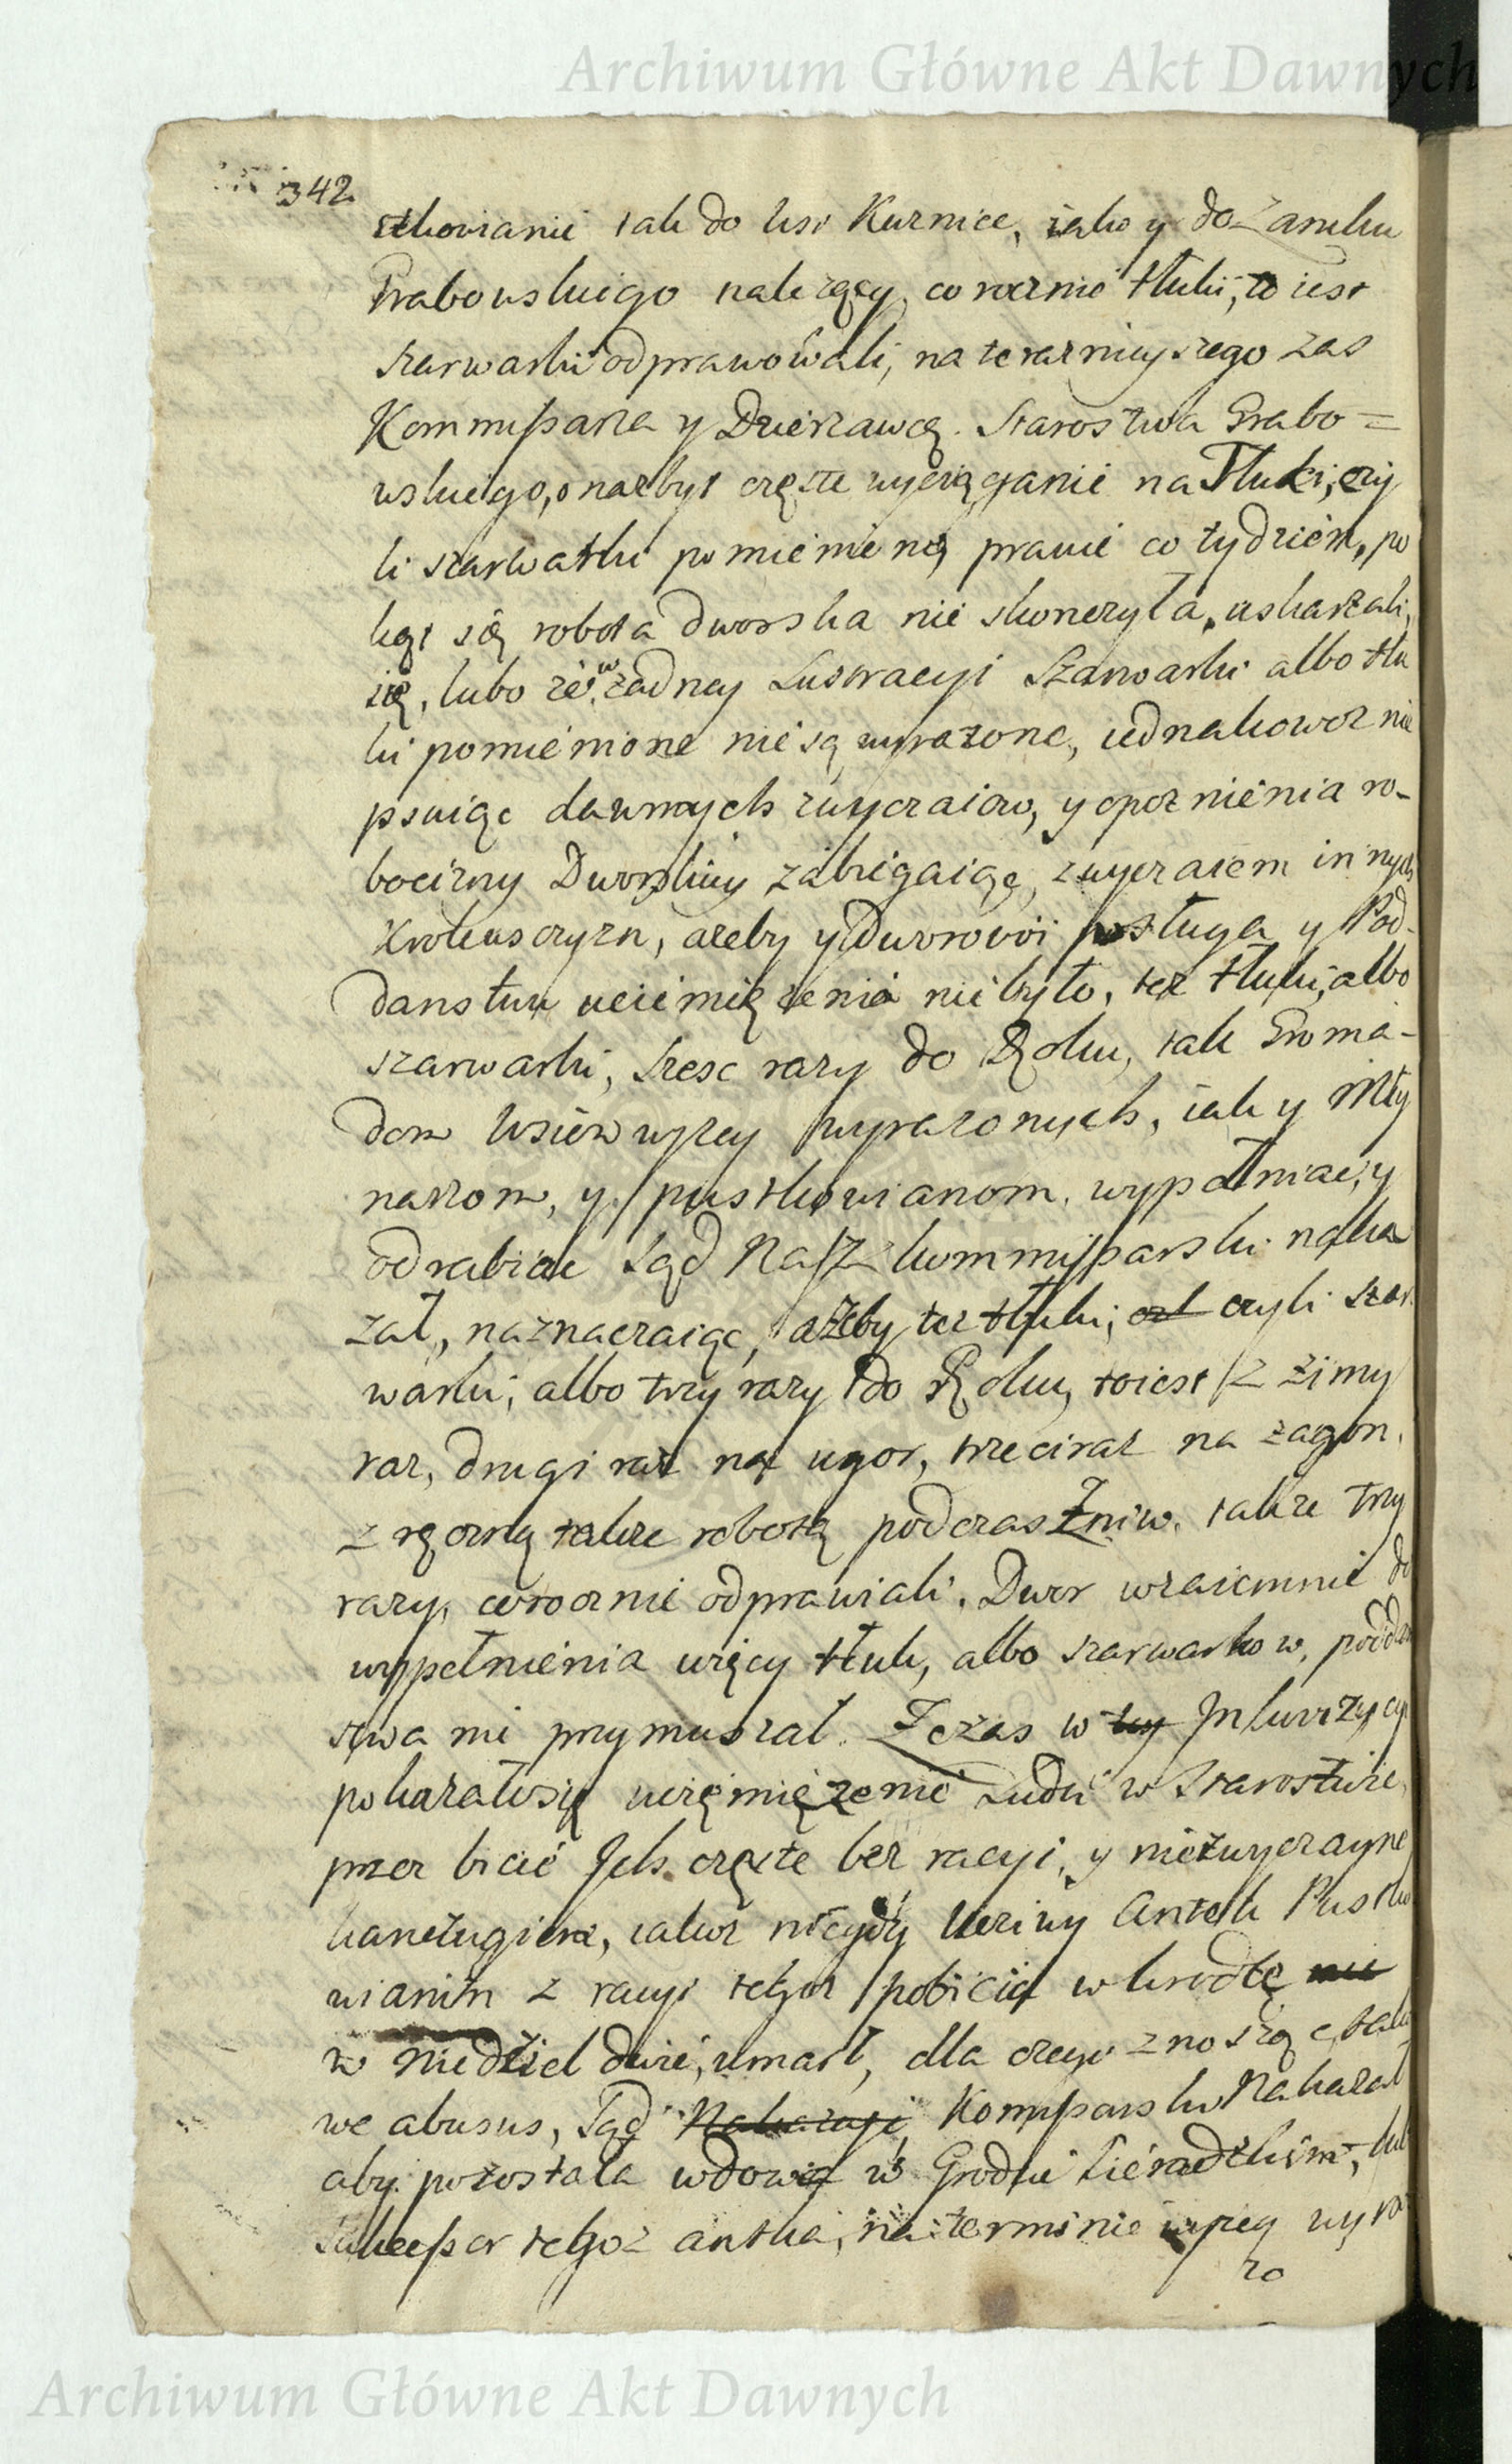 Archiwum Główne Akt Dawnych
342
stkowianie tak do wsi Kurnice, iako y do Zamku
Grabowskiego nalezący, corocznie tłuki, to iest
szarwarki odprawowali, na teraznieyszego zas
Kommissarza y Dzierzawcę Starostwa Grabo=
wskiego, o nazbyt częste wyciąganie na Tłuki, czy
li szarwarki pomienione, prawie co tydzien, po
kąt się robota dworska nie skonczyła, uskarzali
się, lubo ze w zadney Lustracyi Szarwarki albo tłu
ki pomienione nie są wyrazone, iednakowoz nie
psuiąc dawnych zwyczaiow, y opoznienia ro-
bocizny Dworskiey zabiegaiąc, zwyczaiem innych
Krolewsczyzn, azeby y Dworowi posługa y Pod-
danstwu uciemięzenia nie było, tez tłuki, albo
szarwarki, szesc razy do Roku, tak Groma-
dom wsiow wyzey wyrazonych, iak y Mły
narzom, y pustkowianom, wypełniac, y
odrabiac Sąd Nasz kommissarski naka
zał, naznaczaiąc, azeby tez tłuki, czl czyli szar
warki, albo trzy razy do Roku, toiest z zimy
raz, drugi raz na ugor, trzeci raz na zagon,
z ręczną takze robotą podczas Zniw, takze trzy
razy, corocznie odprawiali, Dwor wzaiemnie do
wypełnienia więcy tłuk, albo szarwarkow, podda
stwa nie przymuszał. Ze zas w tey Inkwizycyi
pokazałosię uciemięzenie Ludu w Starostwie,
przez bicie Ich częste bez racyi, y niezwyczayne
kanczugiem, iakoz niegdy Antek Pustko
wianin z racyi tegoz pobicia w krotce nie
w niedziel dwie, umarł, dla czego znosząc tako
we abusus, Sąd Nakazuie Kommissarski Nakazał
aby pozostała wdowa w Grodzie Sieradzkim, lub
Sukcessor tegoz antka, na terminie wyzey wyra
zo
Archiwum Główne Akt Dawnych